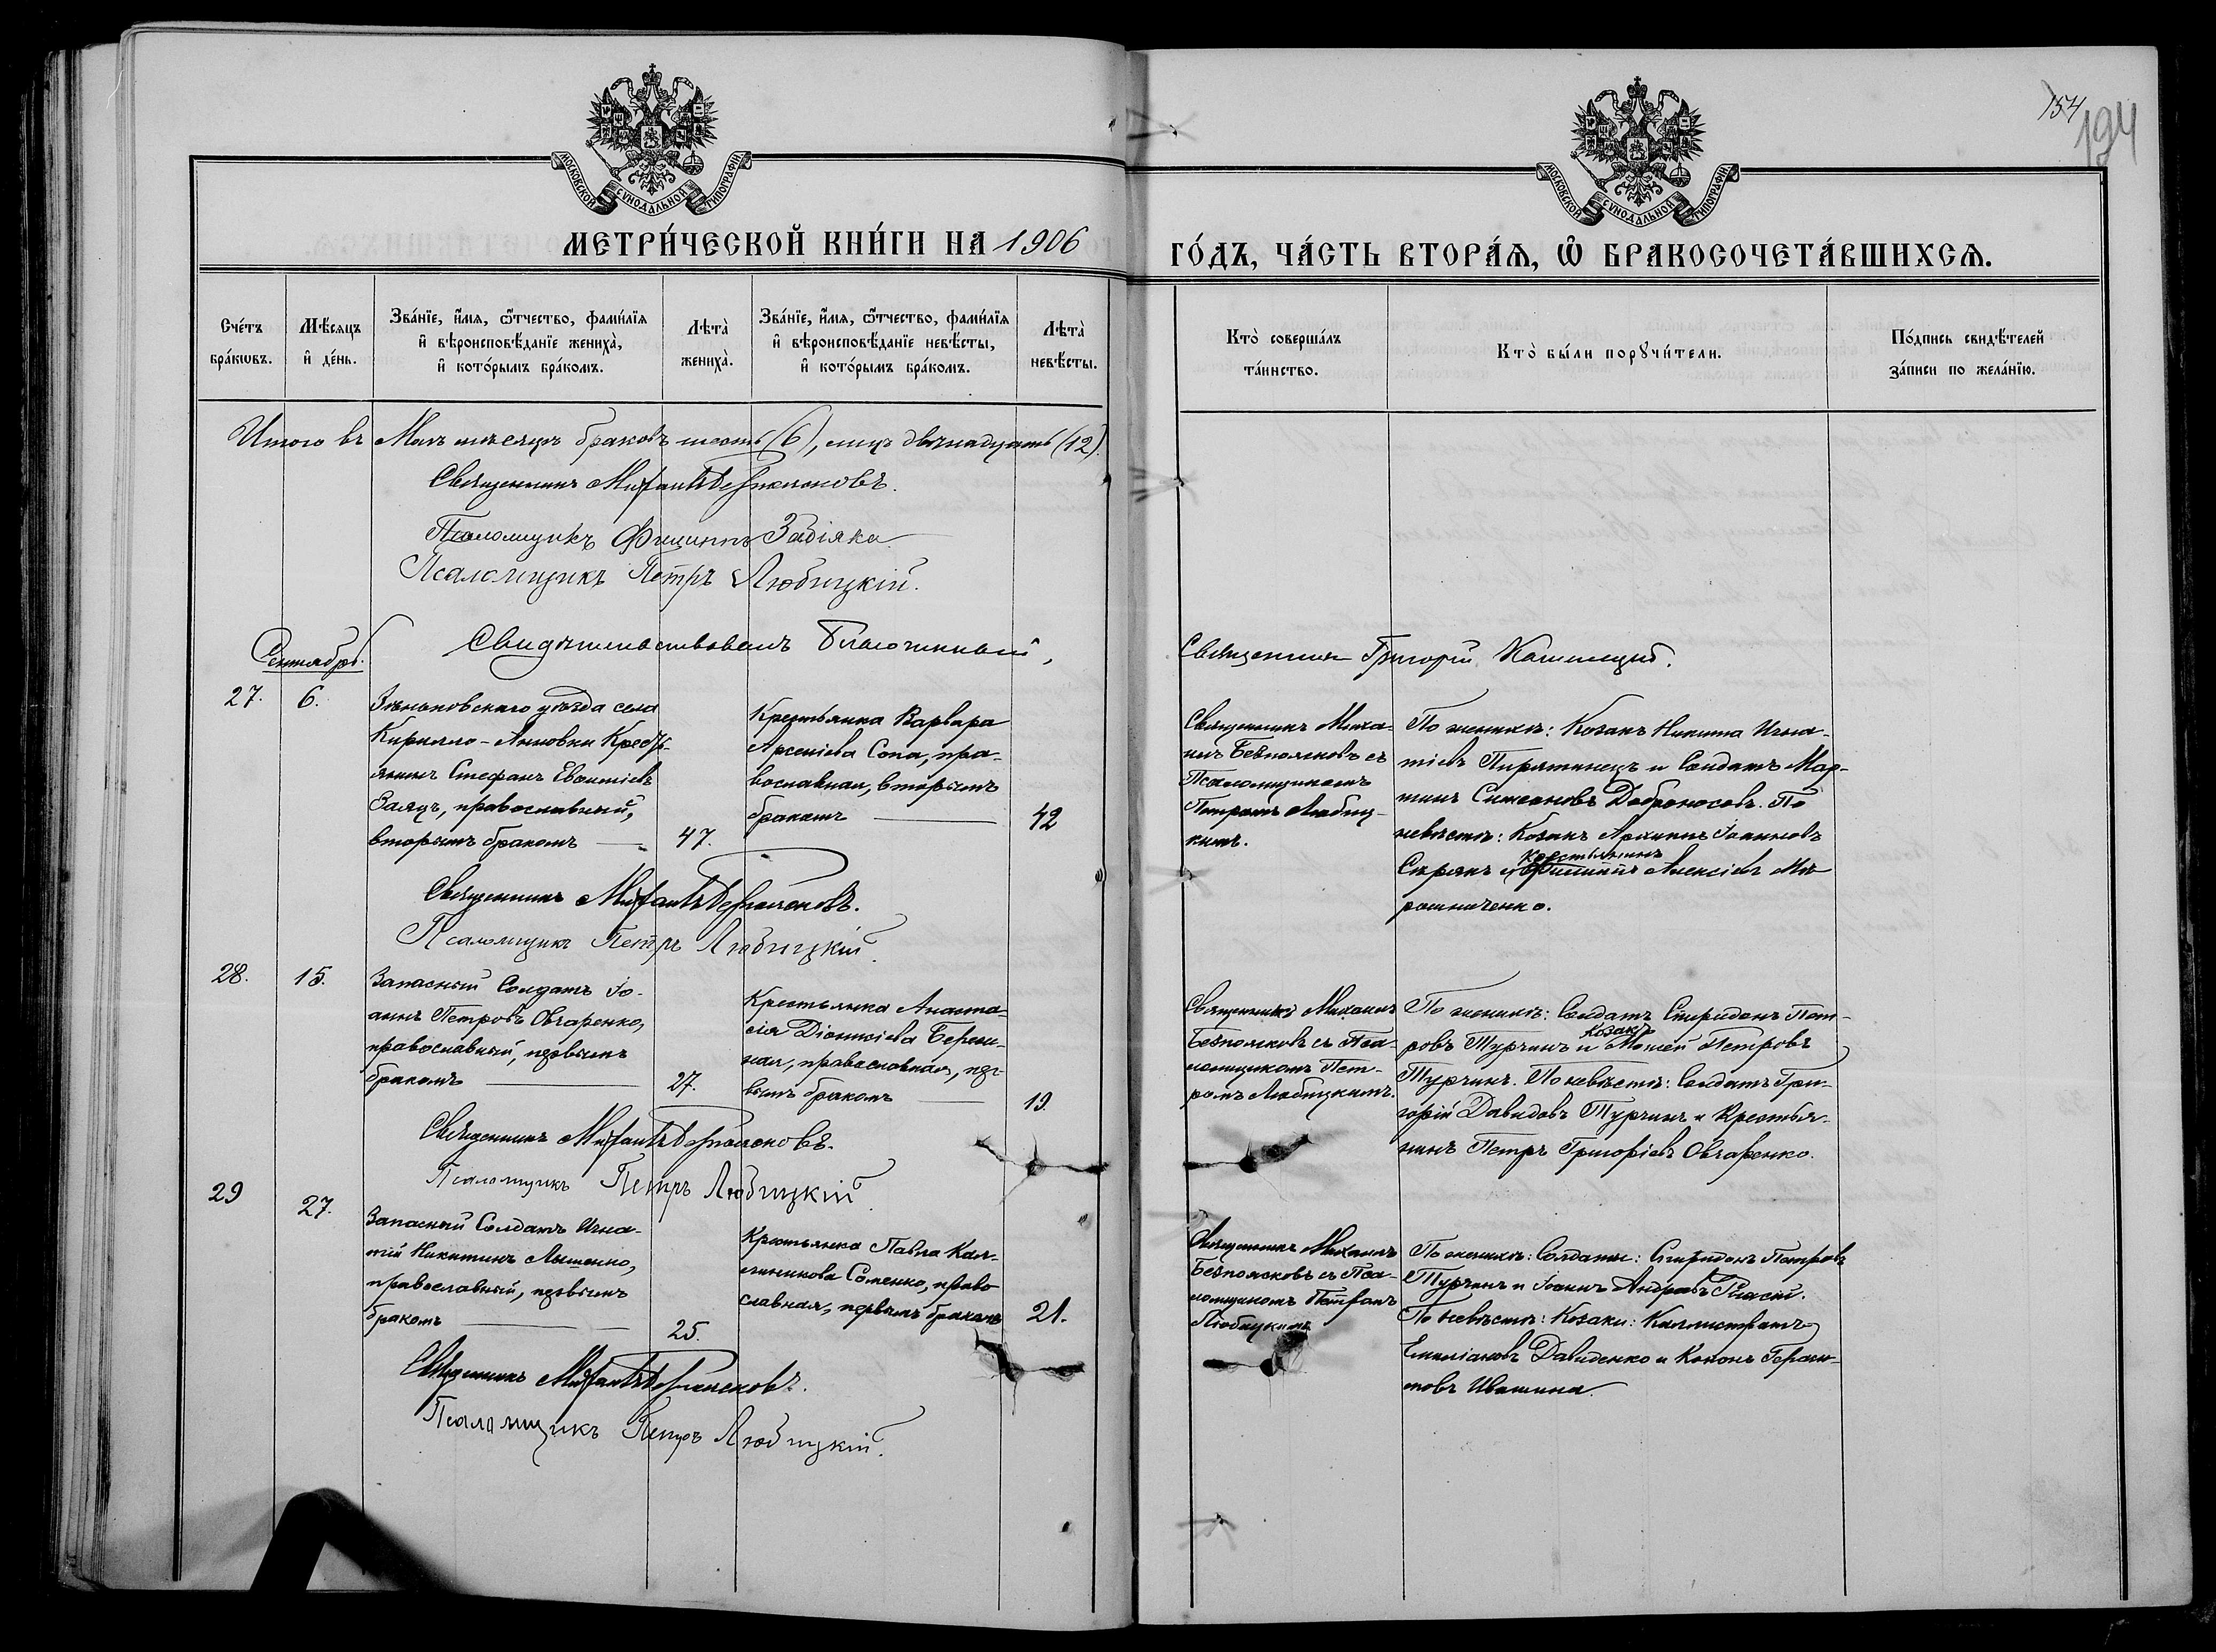 154
194
МОСКОВСКОЙ СУНОДАЛЬНОЙ ТИПОГРАФІИ
МОСКОВСКОЙ СУНОДАЛЬНОЙ ТИПОГРАФІИ
МЕТРИ́ЧЕСКОЙ КНИ́ГИ НА 1906
ГО́ДЪ, ЧА́СТЬ ВТОРА́Я, Ѿ БРАКОСОЧЕТА́ВШИХСЯ.
Сче́тъ бра́кѡвъ.
Мѣ́сяцъ и҆ де́нь.
Зва́нїе, и҆́мя, ѻ҆́тчество, фами́лїя
и҆ вѣроисповѣ́данїе жениха̀,
и҆ кото́рымъ бра́комъ.
Лѣта̀ жениха̀.
Зва́нїе, и҆́мя, ѻ҆́тчество, фами́лїя
и҆ вѣроисповѣ́данїе невѣ́сты,
и҆ кото́рымъ бра́комъ.
Лѣта̀ невѣ́сты.
Кто̀ соверша́лъ
та́инство.
Кто̀ бы́ли порꙋчи́тели.
По́дпись свидѣ́телей
за́писи по жела́нїю.
Итого въ Маѣ мѣсяцѣ браковъ шесть (6), лицъ двѣнадцать (12).
Священникъ Михаилъ Безпоясковъ.
Псаломщикъ Филиппъ Забіяка
Псаломщикъ Петръ Любицкій.
Свидѣтельствовалъ Благочинный,
Священникъ Григорій
Сентябрь.
27.
6.
Зѣньковскаго уѣзда села
Кирилло-Анновки Кресть-
янинъ Стефанъ
Заяцъ, православный,
вторымъ бракомъ
47.
Крестьянка Варвара
Арсеніева Сопа, пра-
вославная, вторымъ
бракомъ
42
Священникъ Миха-
илъ Безпоясковъ съ
Псаломщикомъ
Петромъ Любиц-
кимъ.
По женихѣ: Козакъ Никита Игна-
тіевъ Пирятинецъ и Солдатъ Мар-
тинъ Симеоновъ Доброносовъ. По
невѣстѣ: Козакъ Архиппъ Іоанновъ
Скрякъ и Крестьянинъ Филиппъ Алексіевъ Мі-
рошниченко.
Священникъ Михаилъ Безпоясковъ.
Псаломщикъ Петръ Любицкій.
28.
15.
Запасный Солдатъ Іо-
аннъ Петровъ Овчаренко,
православный, первымъ
бракомъ
27.
Крестьянка Анаста-
сія Діонисіева Береж-
ная, православная, пер-
вымъ бракомъ
19.
Священникъ Михаилъ
Безпоясковъ съ Пса-
ломщикомъ Пет-
ромъ Любицкимъ.
По женихѣ: Солдатъ Спиридонъ Пет-
ровъ Турчинъ и Козакъ Моисей Петровъ
Турчинъ. По невѣстѣ: Солдатъ Гри-
горій Давидовъ Турчинъ и Крестья-
нинъ Петръ Григоріевъ Овчаренко.
Священникъ Михаилъ Безпоясковъ.
Псаломщикъ Петръ Любицкій
29
27.
Запасный Солдатъ Игна-
тій Никитинъ Ляшенко,
православный, первымъ
бракомъ
25.
Крестьянка Павла Кал-
линикова Соменко, право
славная, первымъ бракомъ
21.
Священникъ Михаилъ
Безпоясковъ съ Пса-
ломщикомъ Петромъ
Любицкимъ
По женихѣ: Солдаты: Спиридонъ Петровъ
Турчинъ и Іоаннъ Андреевъ
По невѣстѣ: Козаки: Каллистратъ
Емиліановъ Давиденко и Кононъ Гераси-
мовъ Ивашина.
Священникъ Михаилъ Безпоясковъ.
Псаломщикъ Петръ Любицкій.